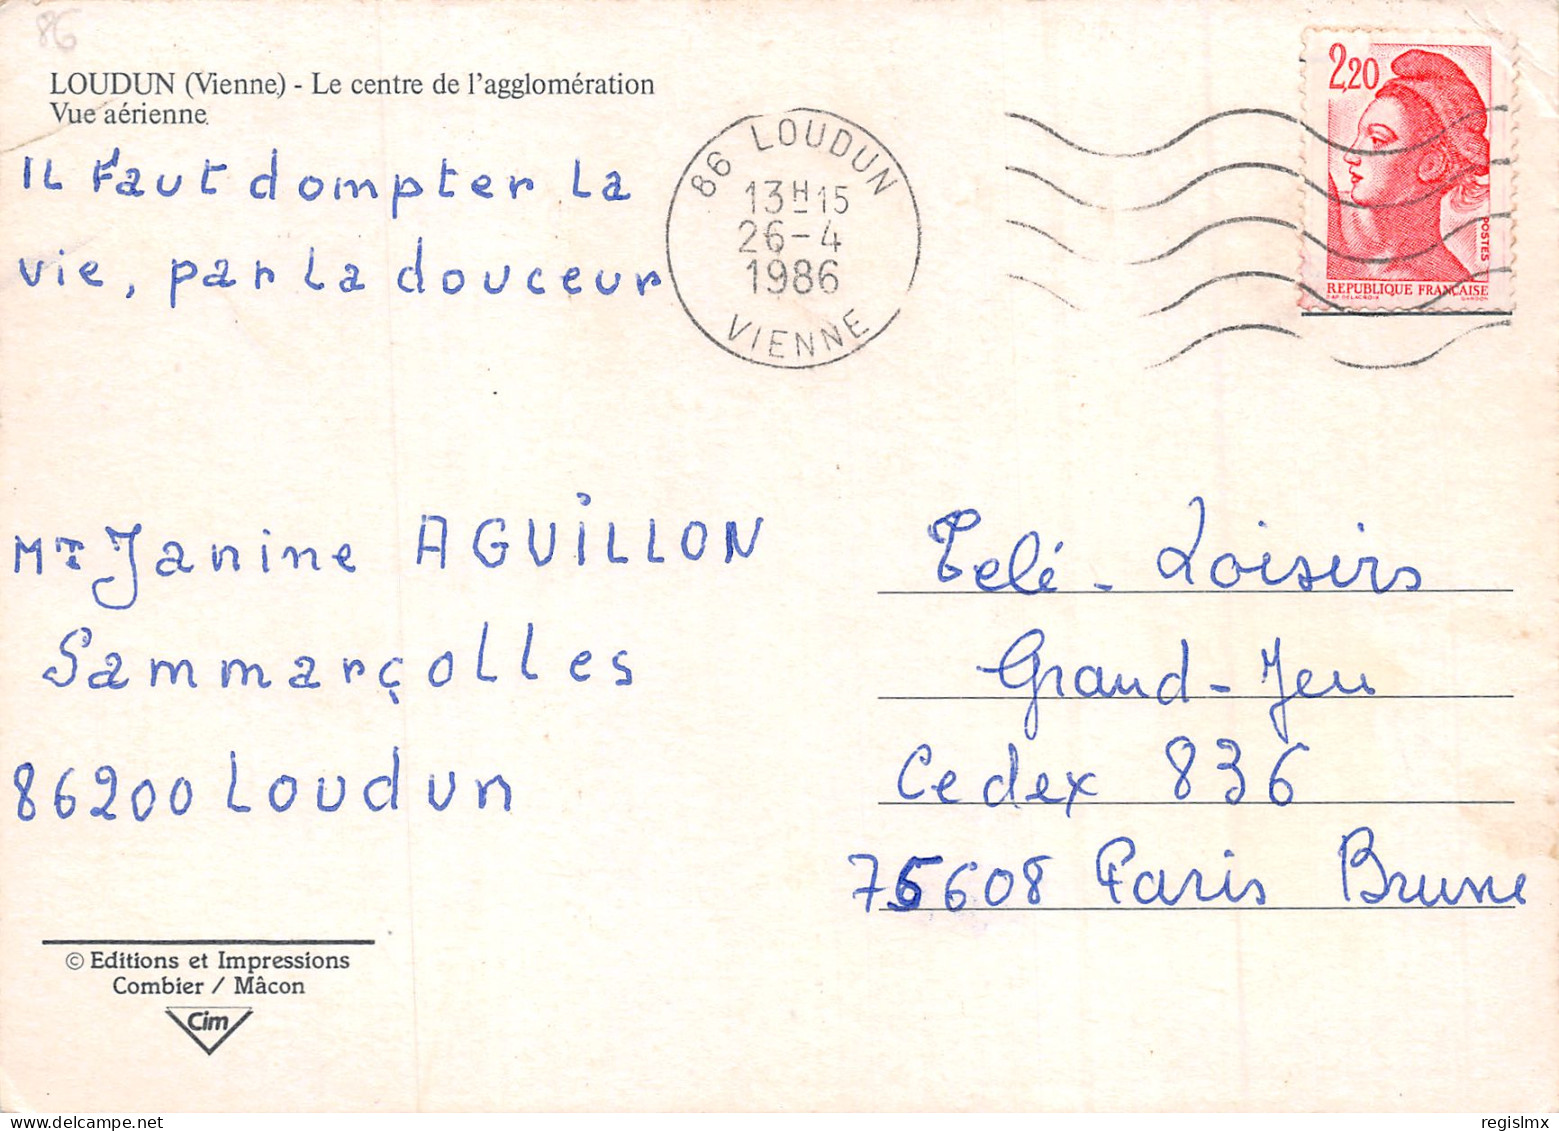 86
LOUDUN (Vienne) - Le centre de l'agglomération
Vue aérienne.
Il Faut dompter la
vie, par la douceur
86 LOUDUN
13H15
26-4
1986
VIENNE
2,20
POSTES
REPUBLIQUE FRANÇAISE
D'AP. DELACROIX GANDON
Mme Janine AGUILLON
Sammarçolles
86200 Loudun
Télé-Loisirs
Grand-Jeu
Cedex 836
75608 Paris Brune
© Editions et Impressions
Combier / Mâcon
Cim
regislmx